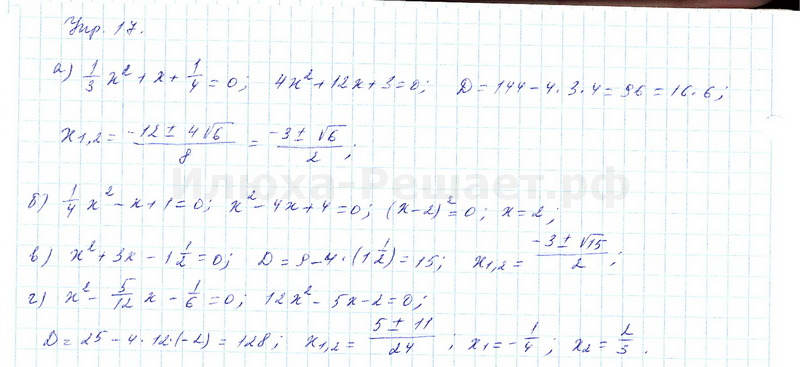 Упр. 17.
а) 1/3 x² + x + 1/4 = 0; 4x² + 12x + 3 = 0; D = 144 - 4 · 3 · 4 = 96 = 16 · 6;
x₁,₂ = (-12 ± 4√6)/8 = (-3 ± √6)/2;
Илюха-Решает.рф
б) 1/4 x² - x + 1 = 0; x² - 4x + 4 = 0; (x - 2)² = 0; x = 2;
в) x² + 3x - 1 1/2 = 0; D = 9 - 4 · (1 1/2) = 15; x₁,₂ = (-3 ± √15)/2;
г) x² - 5/12 x - 1/6 = 0; 12x² - 5x - 2 = 0;
D = 25 - 4 · 12 · (-2) = 128; x₁,₂ = (5 ± 11)/24; x₁ = -1/4; x₂ = 2/3.